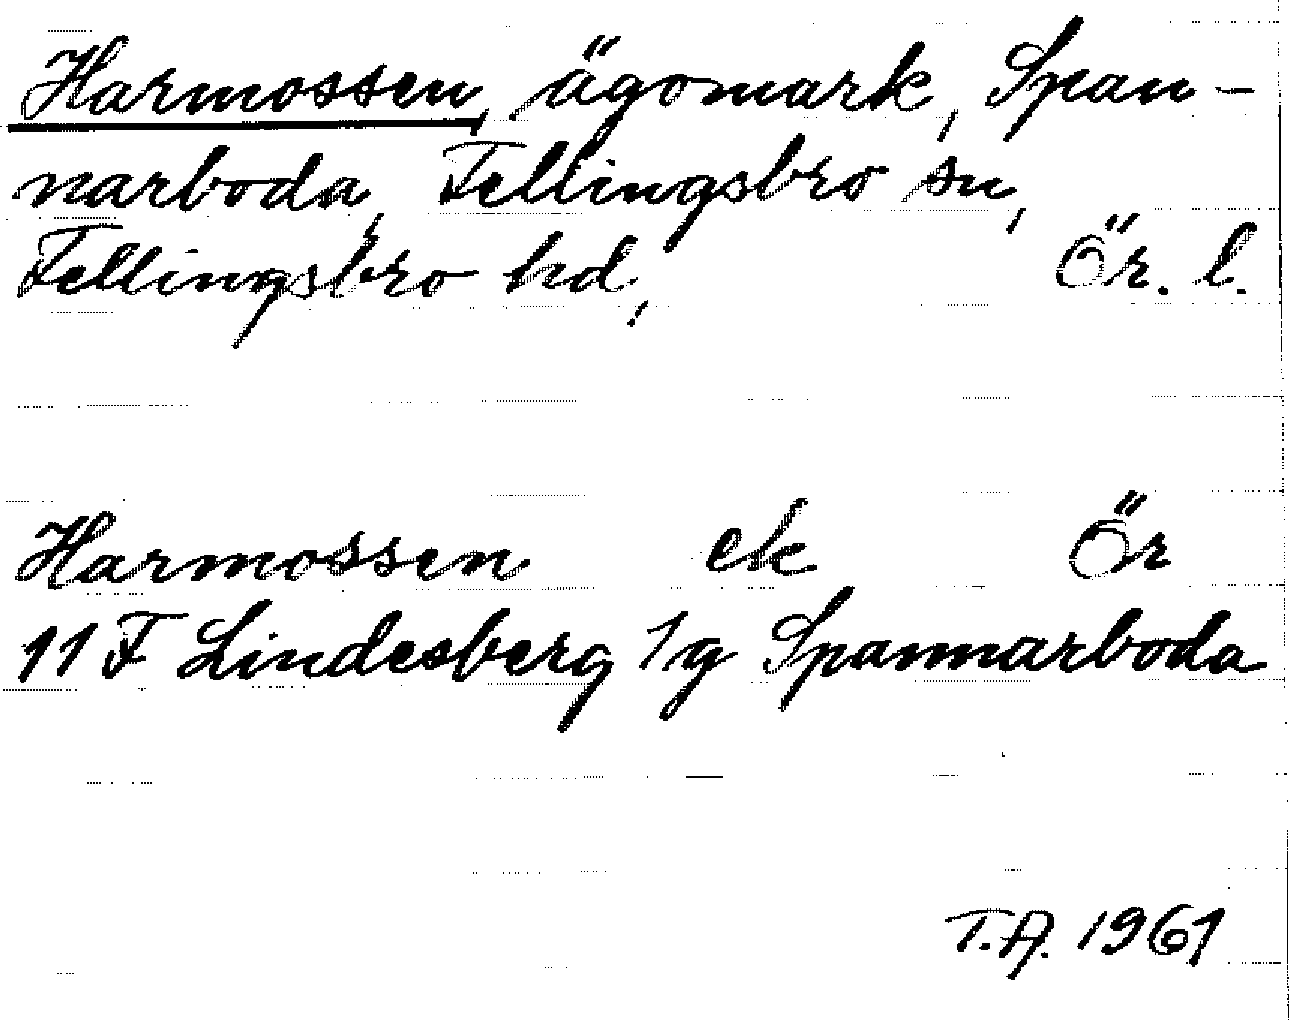 Harmossen, ägomark, Span-
narboda, Fellingsbro sn,
Fellingsbro hd, Ör. l.
Harmossen ek Ör
11 F Lindesberg 1g Spannarboda
T.A. 1961